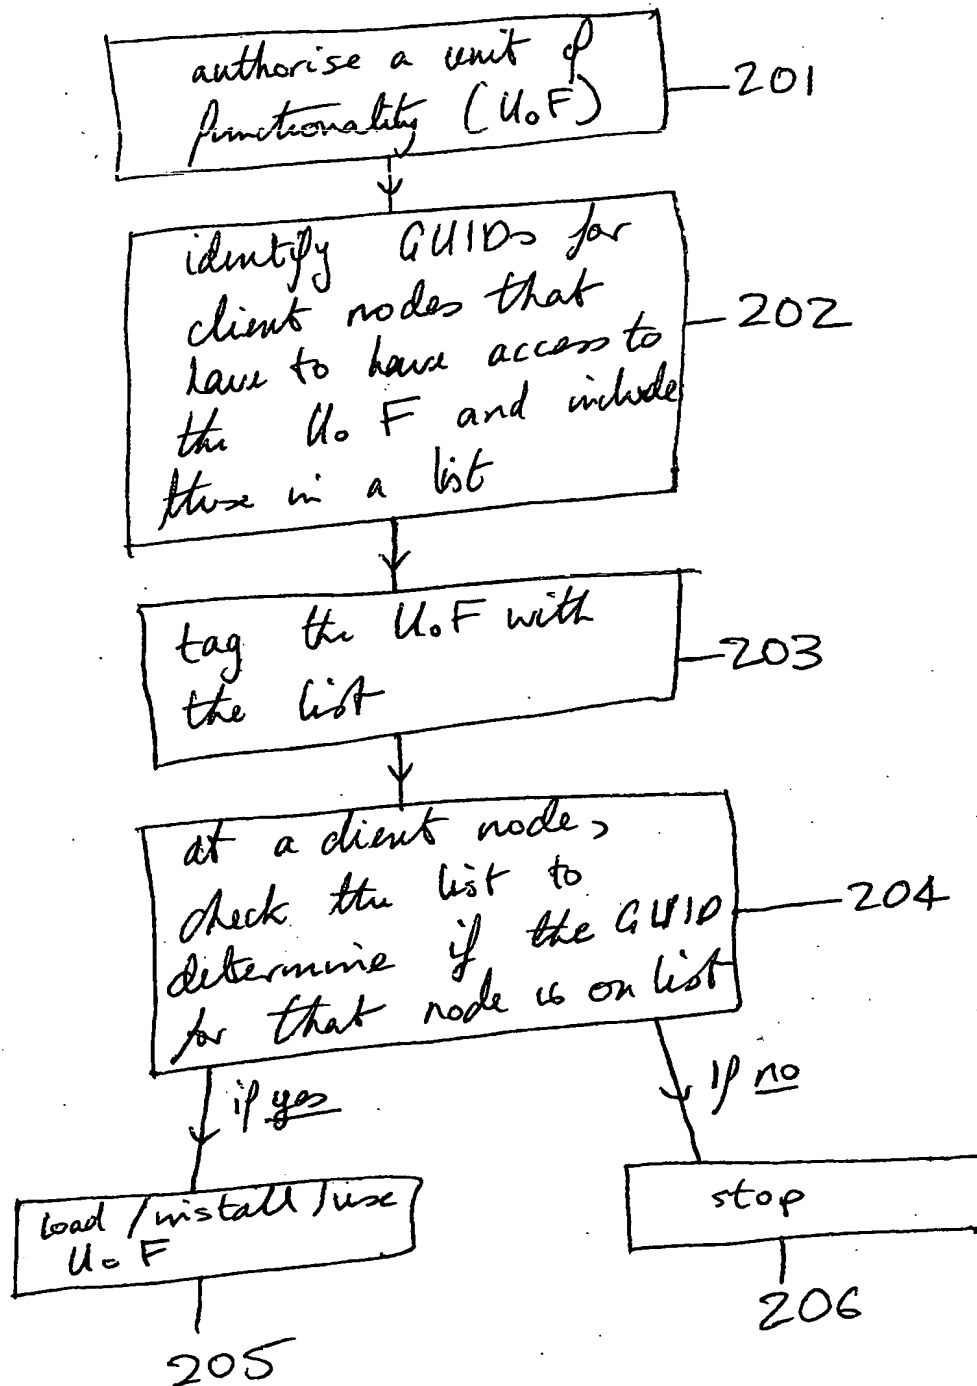 authorise a unit of
functionality (UoF)
201
identify GUIDs for
client nodes that
have to have access to
the UoF and include
these in a list
202
tag the UoF with
the list
203
at a client node,
check the list to
determine if the GUID
for that node is on list
204
if yes
if no
load/install/use
UoF
stop
205
206